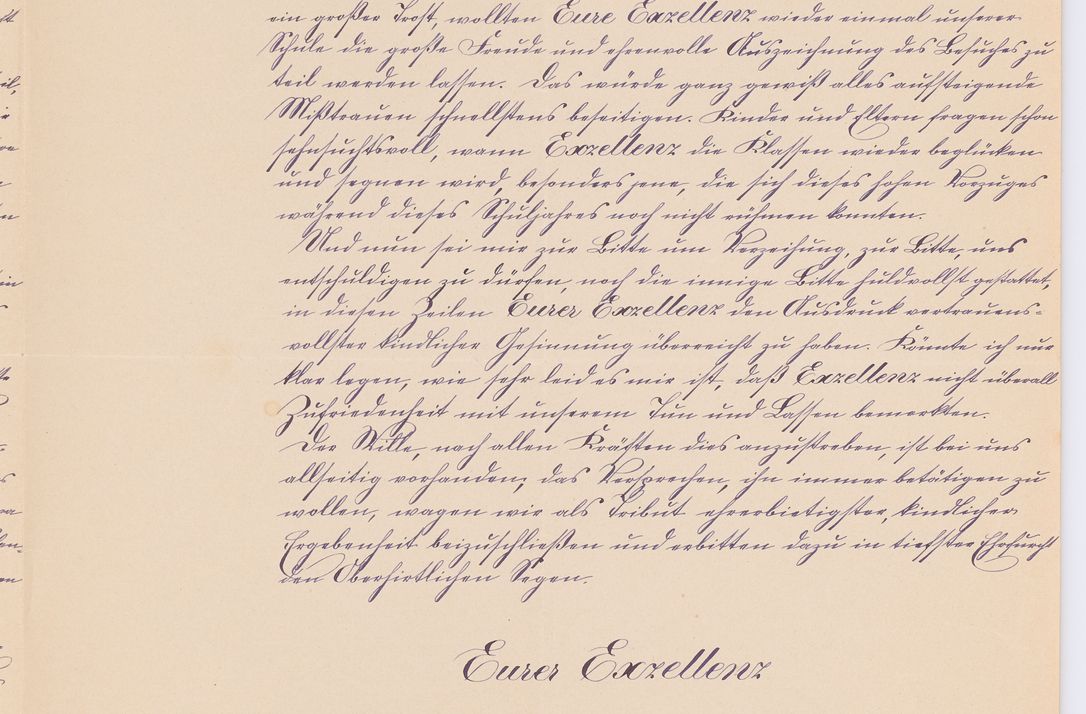 ein großer Trost, wollten Eure Exzellenz wieder einmal unserer
Schule die große Freude und ehrenvolle Auszeichnung des Besuches zu
teil werden lassen. Das würde ganz gewiß alles aufsteigende
Mißtrauen schnellstens beseitigen. Kinder und Eltern fragen schon
sehnsuchtsvoll, wann Exzellenz die Klassen wieder beglücken
und segnen wird, besonders jene, die sich dieses hohen Vorzuges
während dieses Schuljahres noch nicht rühmen konnten.
Und nun sei mir zur Bitte um Verzeihung, zur Bitte, uns
entschuldigen zu dürfen, noch die innige Bitte huldvollst gestattet,
in diesen Zeilen Eurer Exzellenz den Ausdruck vertrauens-
vollster kindlicher Gesinnung überreicht zu haben. Könnte ich nur
klar legen, wie sehr leid es mir ist, daß Exzellenz nicht überall
Zufriedenheit mit unserem Tun und Lassen bemerkten.
Der Wille, nach allen Kräften dies anzustreben, ist bei uns
allseitig vorhanden; das Versprechen, ihn immer betätigen zu
wollen, wagen wir als Tribut ehrerbietigster, kindlicher
Ergebenheit beizuschließen und erbitten dazu in tiefster Ehrfurcht
den Oberhirtlichen Segen.
Eurer Exzellenz